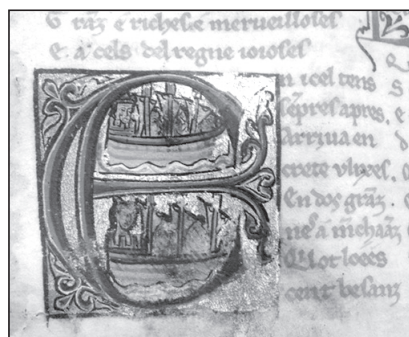 G ranz e richesce merueilloses
E a cels del regne ioioses
E n icel tens
sēpres apres.
Arriua en
crete vlixes.
En dos grãz.
nes a m̃chaãz
Q̉ ot loees
cent besanz